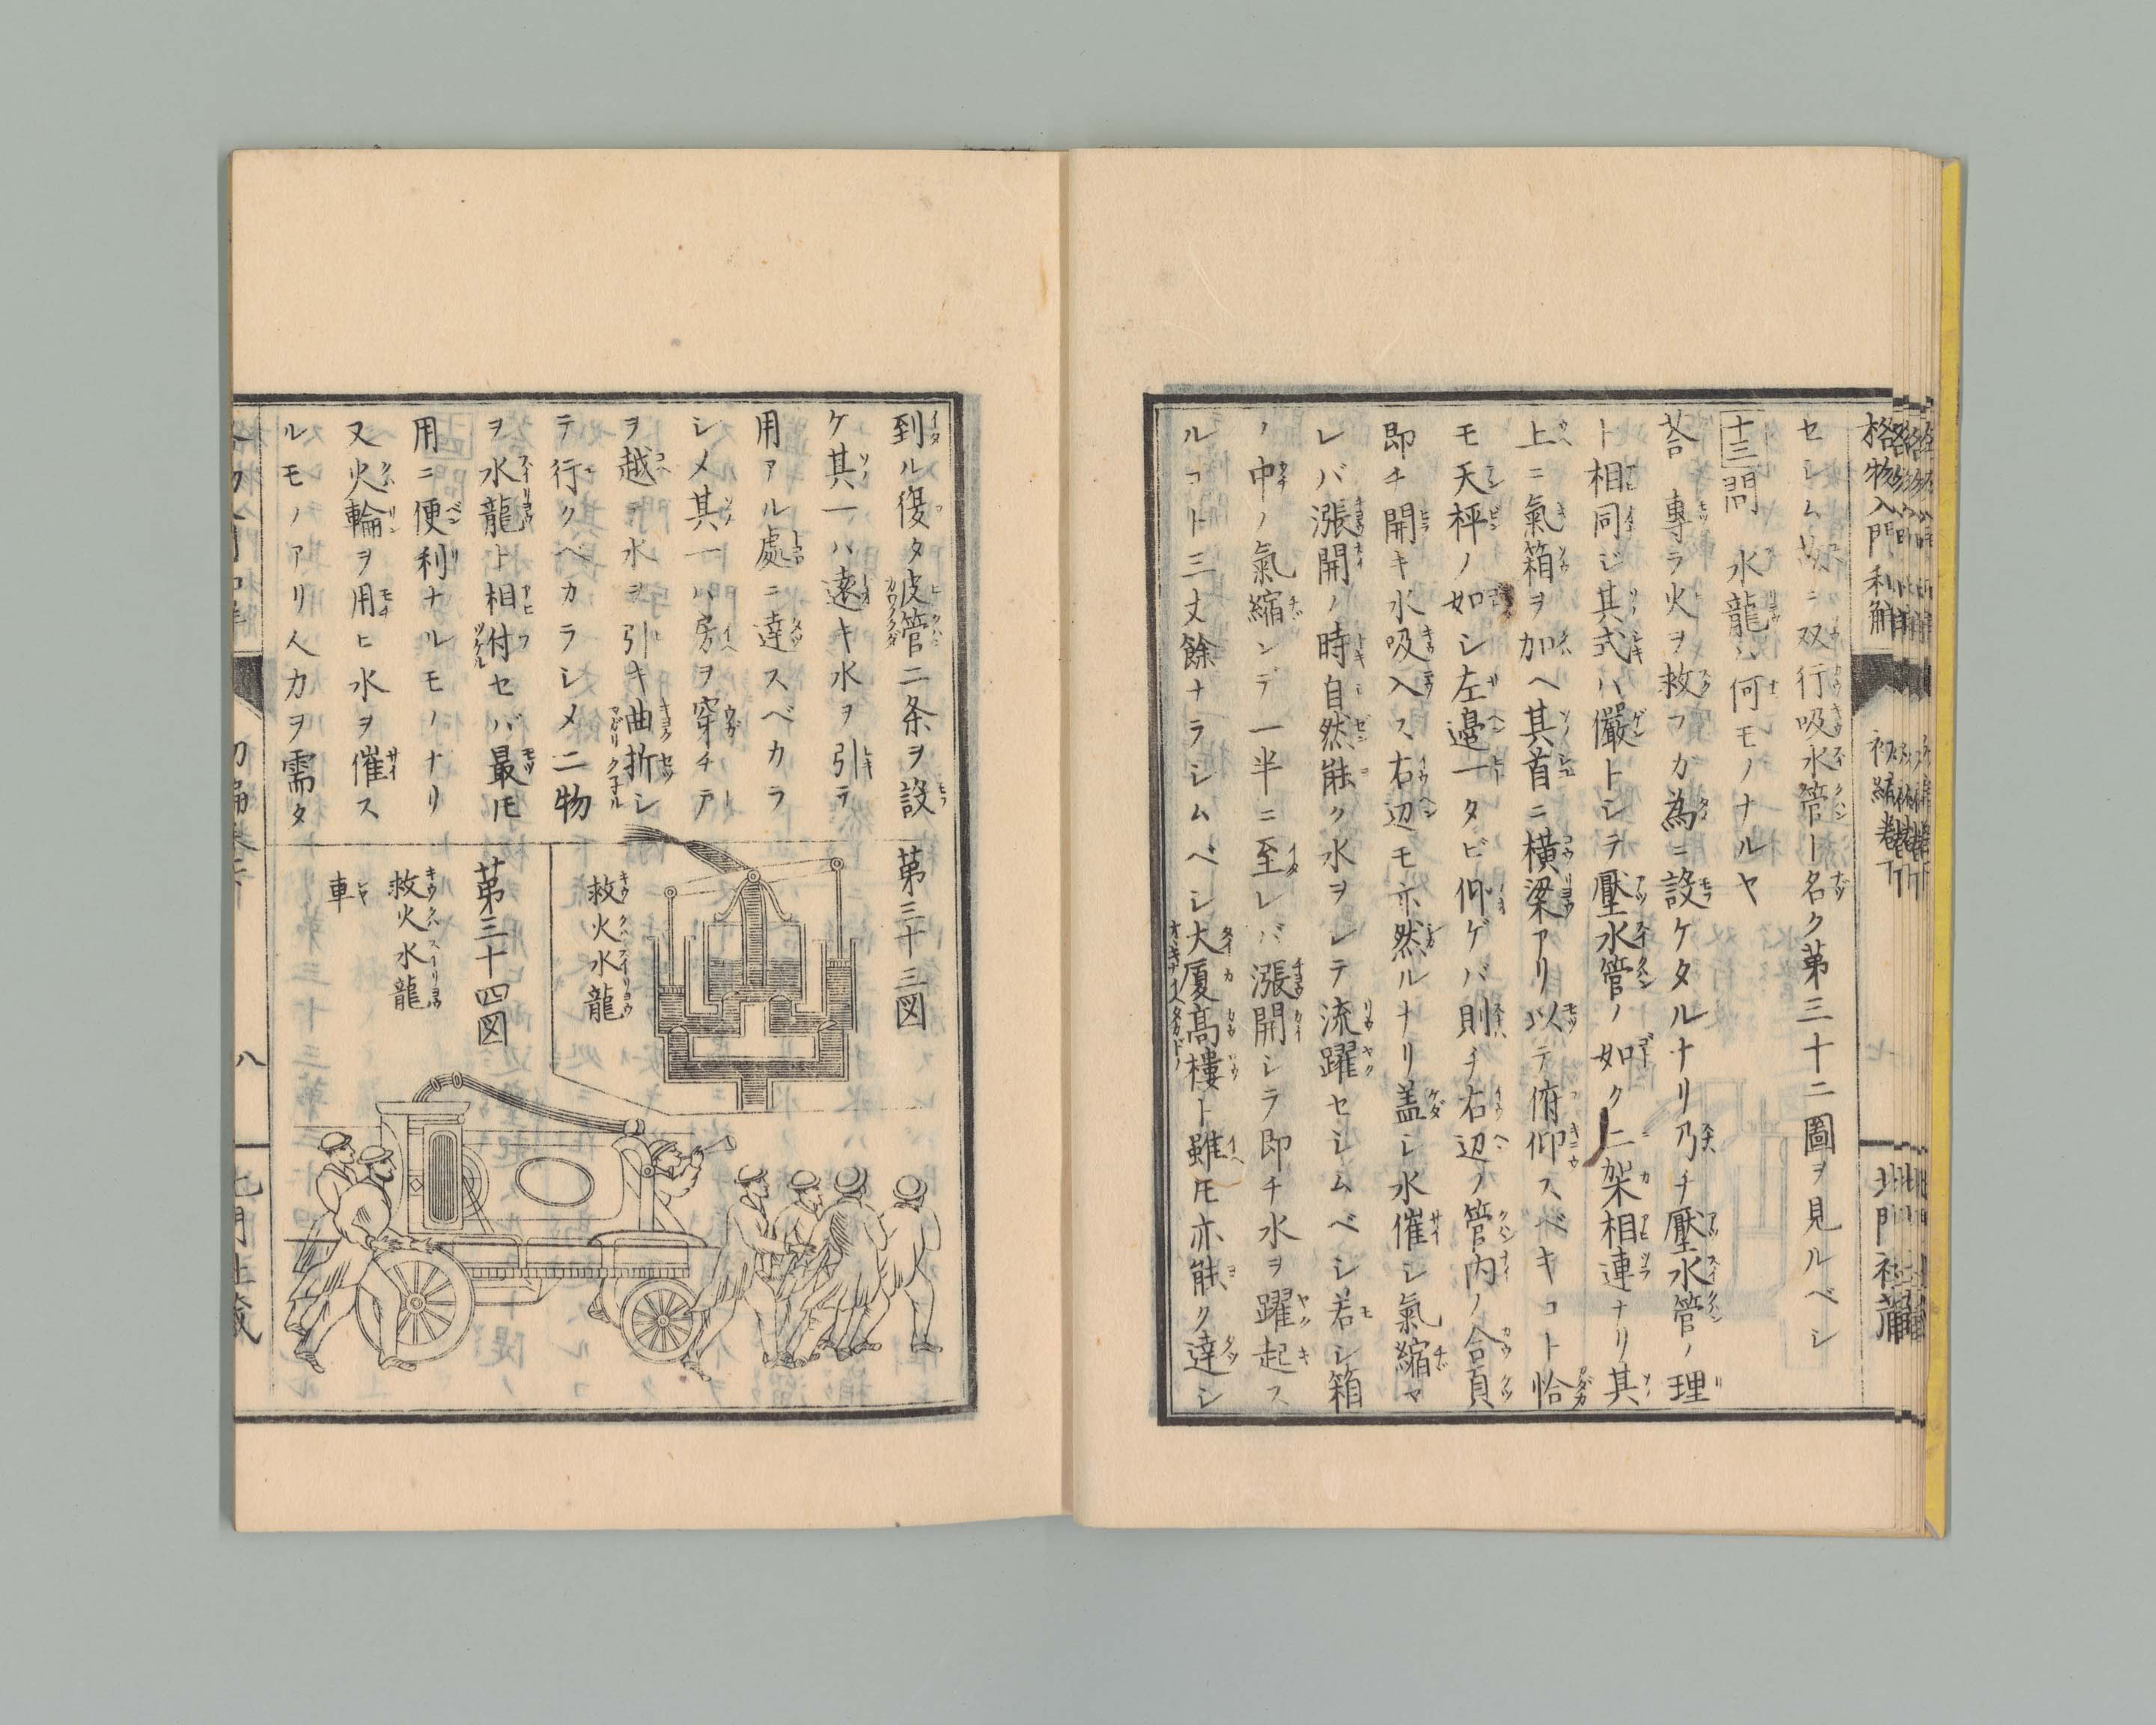 格物入門和解 初編巻下 北門社蔵
セシム故ニ双行吸水管ト名ク苐三十二圖ヲ見ルベシ
十三問 水龍ハ何モノナルヤ
荅 專ラ火ヲ救フガ為ニ設ケタルナリ乃チ壓水管ノ理
ト相同ジ其式ハ儼トシテ壓水管ノ如ク二架相連ナリ其
上ニ氣箱ヲ加ヘ其首ニ横梁アリ以テ俯仰スベキコト恰
モ天秤ノ如シ左邉一タビ仰ゲバ則チ右辺ノ管内ノ合頁
即チ開キ水吸入ス右辺モ亦然ルナリ盖シ水催シ氣縮マ
レバ漲開ノ時自然能ク水ヲシテ流躍セシムベシ若シ箱
ノ中ノ氣縮ンデ一半ニ至レバ漲開シラ即チ水ヲ躍起ス
ルコト三丈餘ナラシムベシ大厦高樓ト雖モ亦能ク達シ
到ル復タ皮管二条ヲ設
ケ其一ハ遠キ水ヲ引テ
用アル處ニ達スベカラ
シメ其一ハ房ヲ穿チテ
ヲ越テ水ヲ引キ曲折シ
テ行クベカラシメ二物
ヲ水龍ト相付セバ最モ
用ニ便利ナルモノナリ
又火輪ヲ用ヒ水ヲ催ス
ルモノアリ人力ヲ需タ
苐三十三図
救火水龍
苐三十四図
救火水龍
車
八